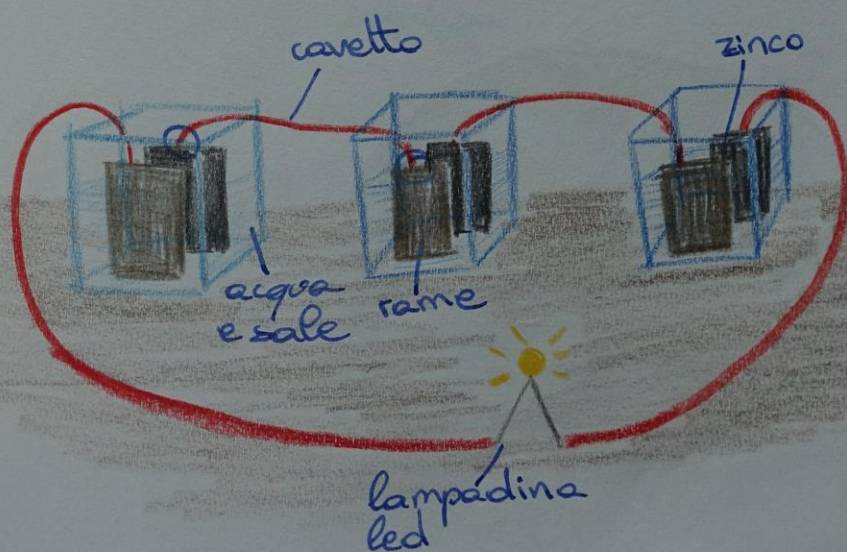 cavetto
zinco
acqua
e sale
rame
lampadina
led